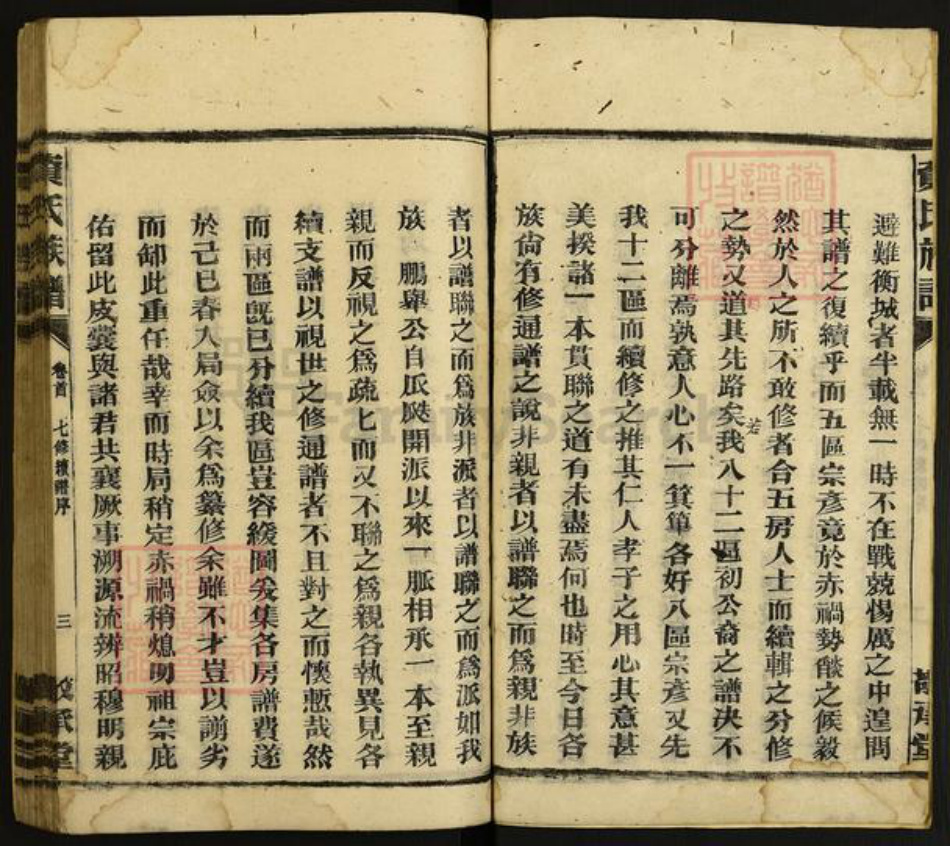 避難衡城者半載無一時不在戰兢惕厲之中遑問
其譜之復續乎而五區宗彥竟於赤禍勢燄之候毅
然於人之所不敢修者合五房人士而續輯之分修
之勢又道其先路矣我八十二區初公裔之譜決不
若
可分離焉孰意人心不一箕箄各好八區宗彥又先
我十二區而續修之推其仁人孝子之用心其意甚
美揆諸一本貫聯之道有未盡焉何也時至今日各
族尙有修通譜之說非親者以譜聯之而爲親非族
者以譜聯之而爲族非派者以譜聯之而爲派如我
族 鵬舉公自瓜瓞開派以來一脈相承一本至親
親而反視之爲疏七而又不聯之爲親各執異見各
續支譜以視世之修通譜者不且對之而懊慙哉然
而兩區旣已分續我區豈容緩圖爰集各房譜費遂
於己巳春入局僉以余爲纂修余雖不才豈以謭劣
而卸此重任哉幸而時局稍定赤禍稍熄叨祖宗庇
佑留此皮囊與諸君共襄厥事溯源流辨昭穆明親
氏族譜
卷首
七修續譜序
三
堂
FamilySearch